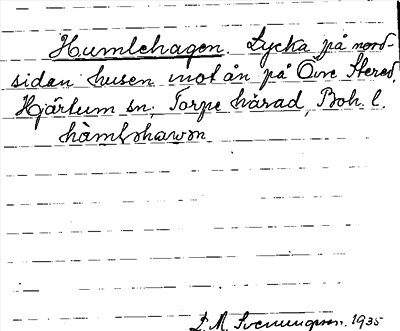 Humlehagen. Lycka på nord-
sidan husen mot ån på Övre Stered,
Hjärtum sn, Torpe härad, Boh. l.
hàmlshawεn
D. M. Svenungsson. 1935